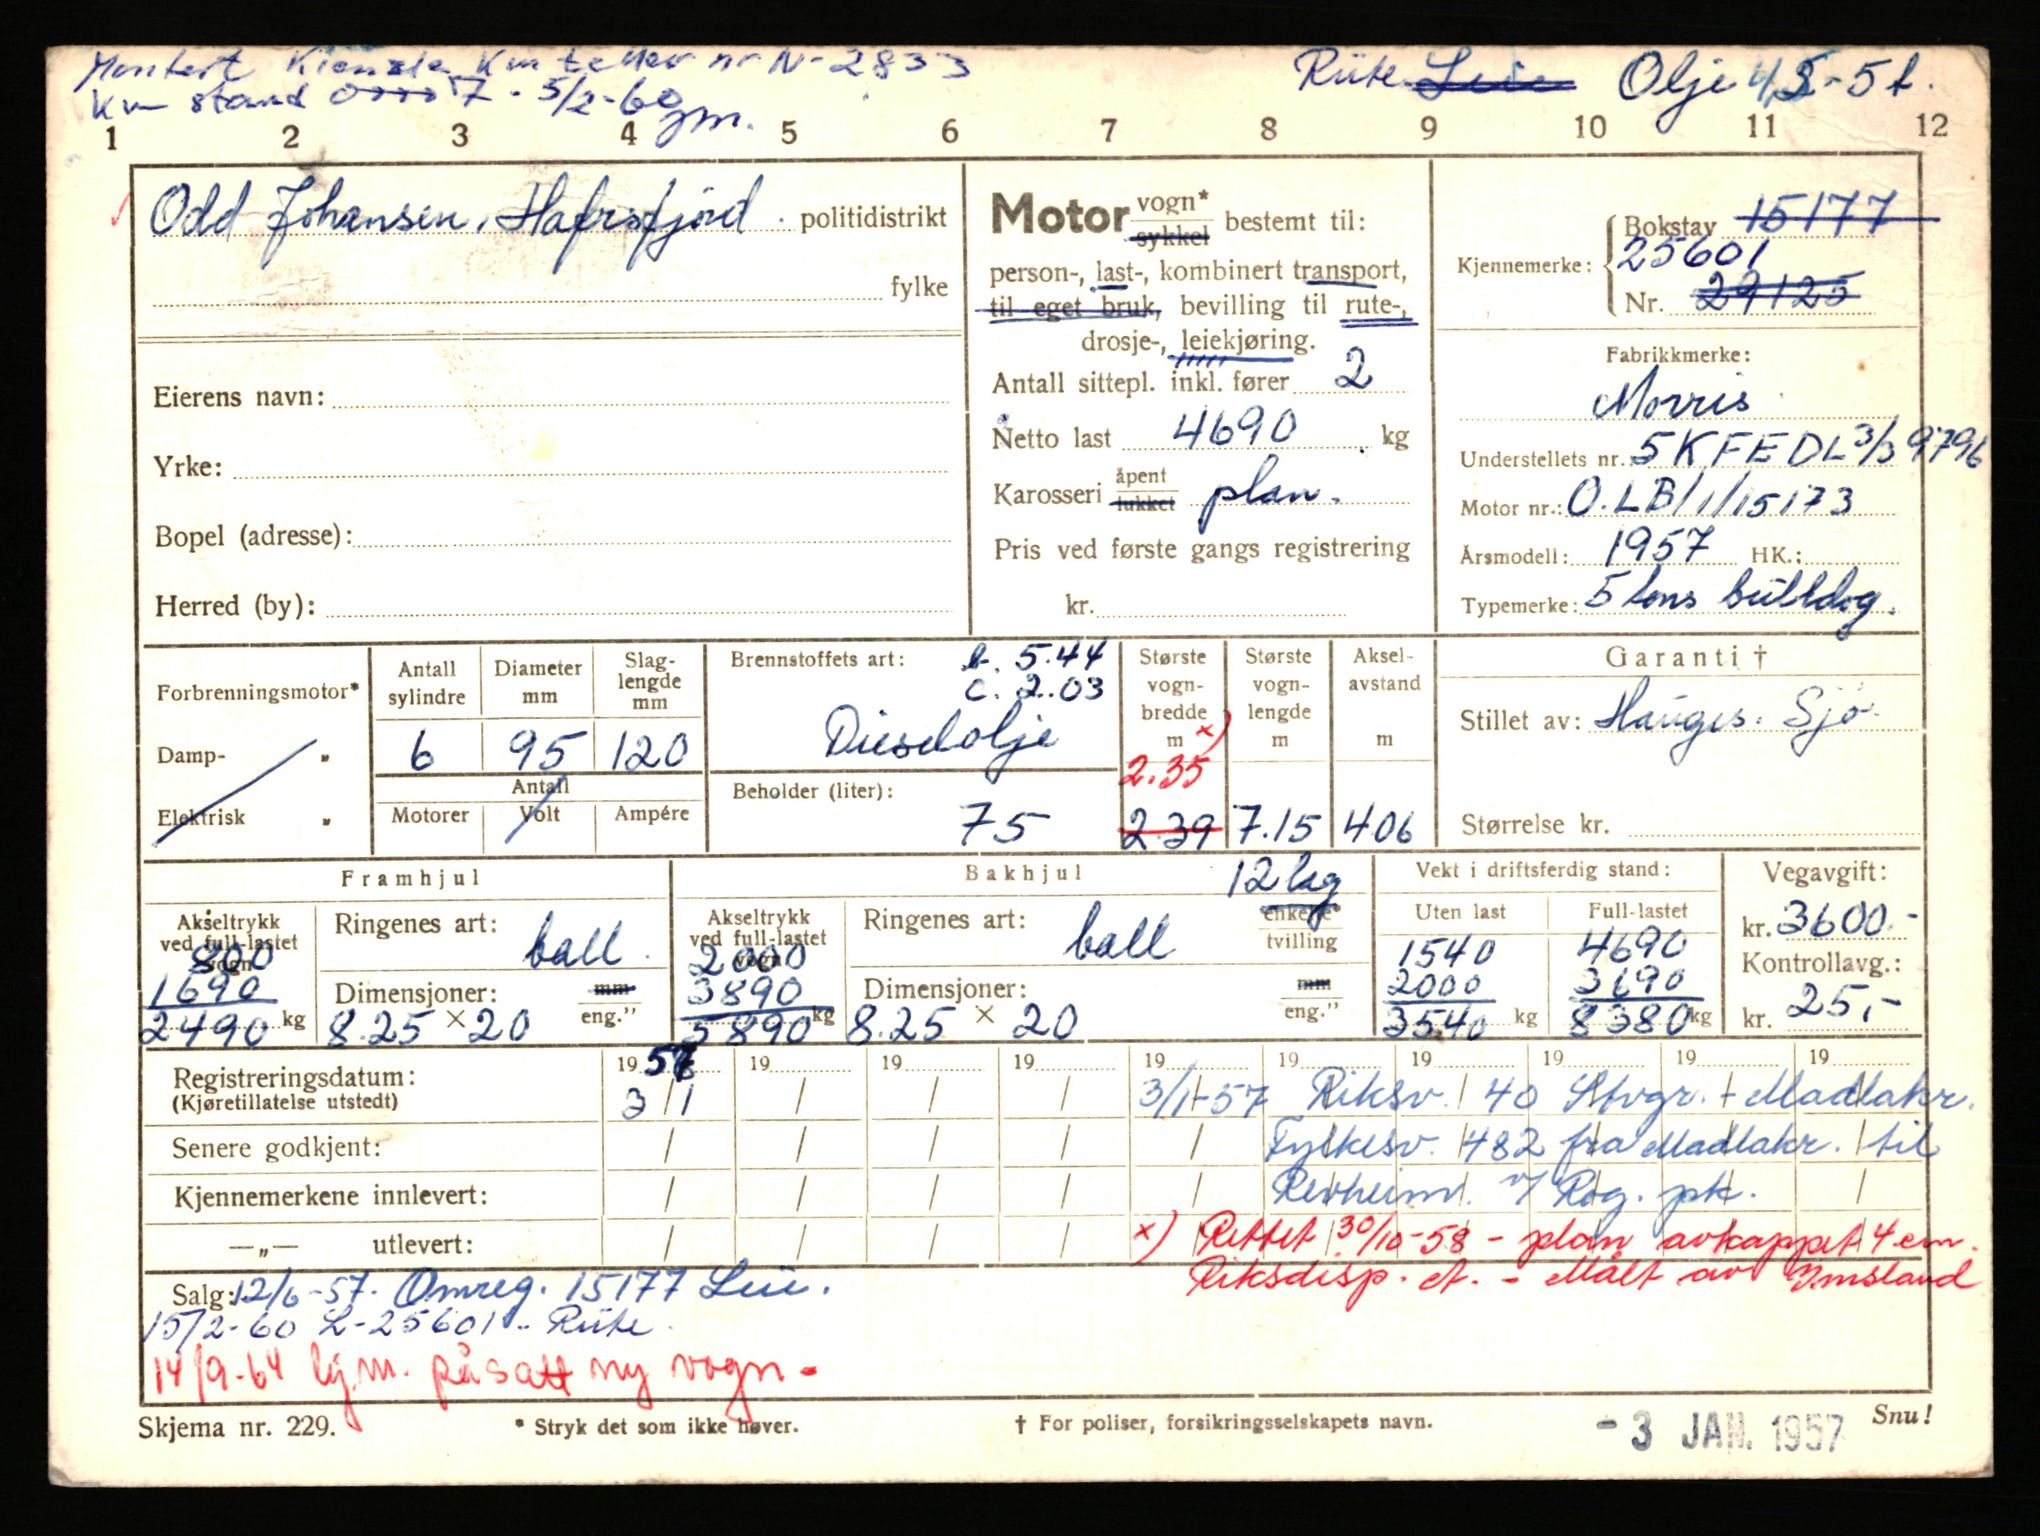 Montert Kienzle Km teller nr N-2833
Km stand 00007 - 5/2-60 gm.
Rüte Leie Olje 4,5-5 t.
1 2 3 4 5 6 7 8 9 10 11 12
Odd Johansen, Hafrsfjord. politidistrikt
fylke
Eierens navn:
Yrke:
Bopel (adresse):
Herred (by):
Motor vogn* sykkel bestemt til:
person-, last-, kombinert transport,
til eget bruk, bevilling til rute-,
drosje-, leiekjøring.
Antall sittepl. inkl. fører 2
Netto last 4690 kg
Karosseri åpent lukket plan.
Pris ved første gangs registrering
kr.
Bokstav 15177
Kjennemerke: 25601
Nr. 29125
Fabrikkmerke:
Morris
Understellets nr.: 5KFEDL3/3 9796
Motor nr.: O.LB/1/15173
Årsmodell: 1957 HK.:
Typemerke: 5 tons bülldog.
Forbrenningsmotor*
Damp- „
Elektrisk „
Antall sylindre
Diameter mm
Slag- lengde mm
6 95 120
Antall
Motorer Volt Ampére
Brennstoffets art: b. 5.44
c. 2.03
Dieselolje
Beholder (liter):
75
Største vogn- bredde m x)
2.35
2.39
Største vogn- lengde m
7.15
Aksel- avstand m
406
Garanti †
Stillet av: Hauges. Sjø
Størrelse kr.
Framhjul
Akseltrykk ved full-lastet vogn
800
1690
2490 kg
Ringenes art: ball.
Dimensjoner: mm
8.25 × 20 eng."
Bakhjul 12 lag
Akseltrykk ved full-lastet vogn
2000
3890
5890 kg
Ringenes art: ball enkelte* tvilling
Dimensjoner: mm
8.25 × 20 eng."
Vekt i driftsferdig stand:
Uten last Full-lastet
1540 4690
2000 3690
3540 kg 8380 kg
Vegavgift:
kr. 3600.-
Kontrollavg.:
kr. 25,-
19 57 19 19 19 19 19 19 19 19 19
Registreringsdatum:
(Kjøretillatelse utstedt)
3/1 3/1-57 Riksv. 40 Stvgr. - Madlakr.
Senere godkjent: Fylkesv. 482 fra Madlakr. til
Kjennemerkene innlevert: Revheim v/ Rog. pk.
—„— utlevert: x) Rettet 30/10-58 - plan avkappet 4 cm.
Riksdisp. et. - Målt av Ymsland
Salg: 12/6-57. Omreg. 15177 Leie.
15/2-60 L-25601.. Rüte.
14/9-64 kj.m. påsatt ny vogn -
Skjema nr. 229.
* Stryk det som ikke høver.
† For poliser, forsikringsselskapets navn.
- 3 JAN. 1957
Snu!